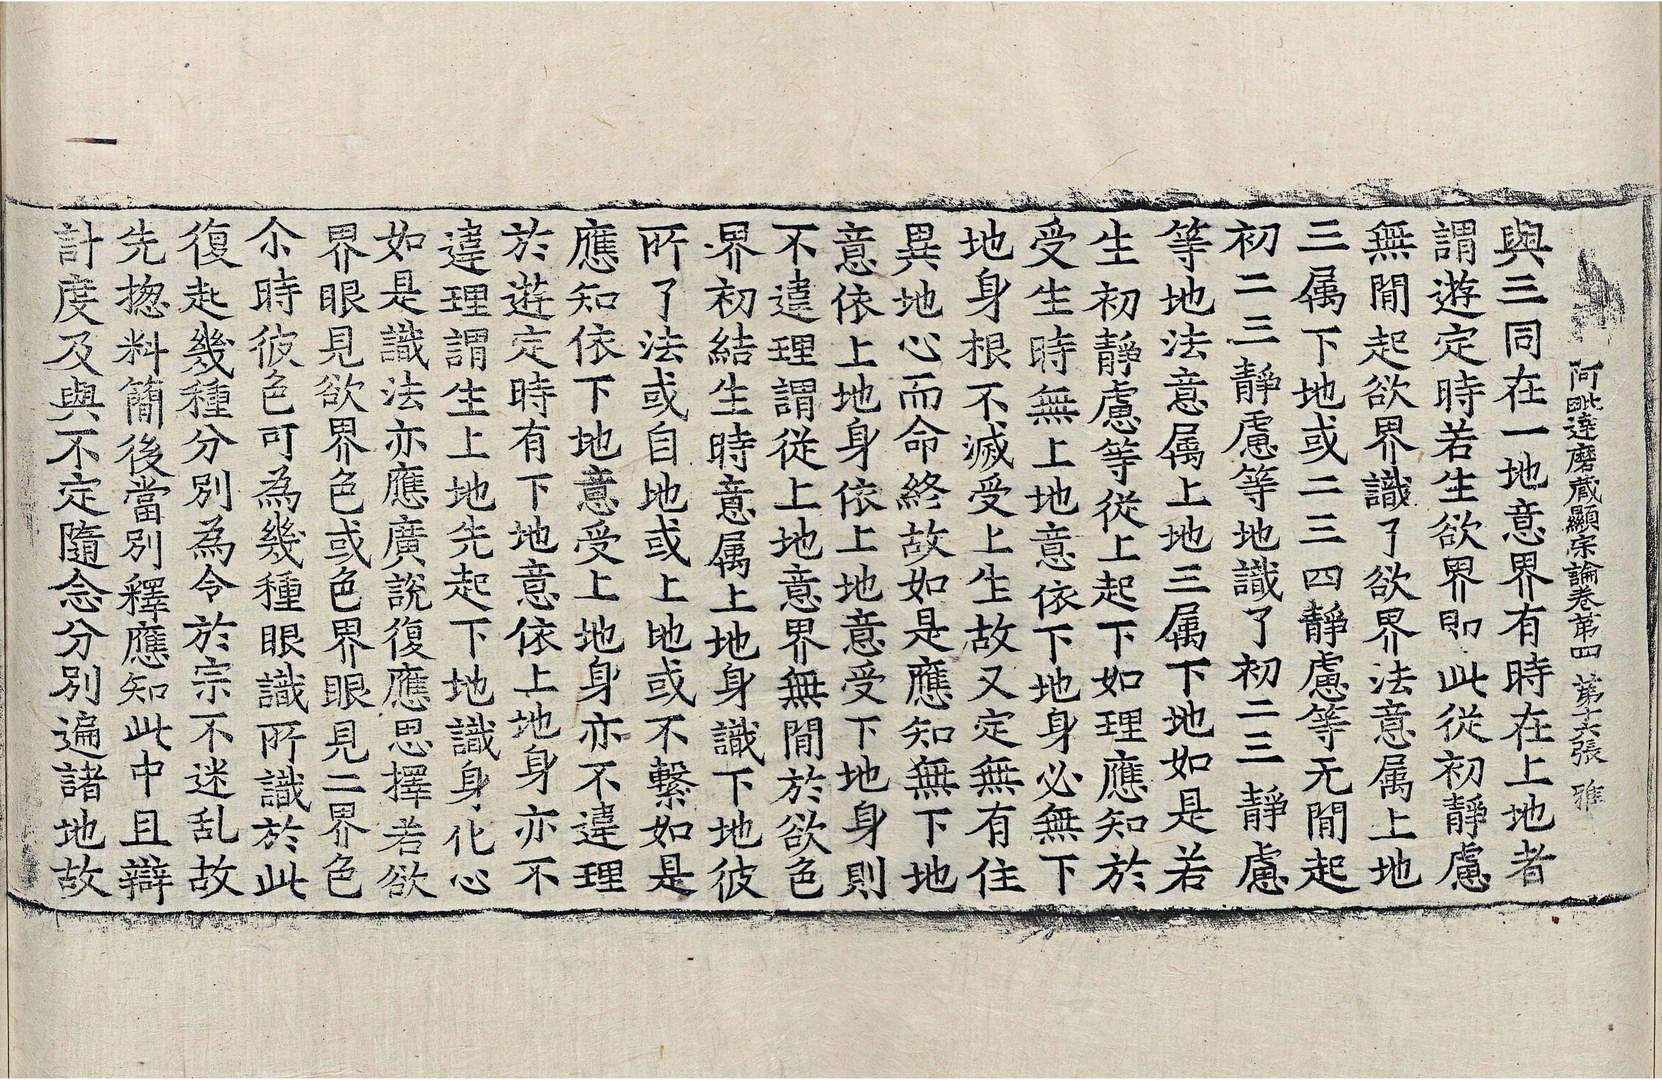 阿毗達磨藏顯宗論卷第四 第十六張 雅
與三同在一地意界有時在上地者
謂遊定時若生欲界即此從初靜慮
無間起欲界識了欲界法意属上地
三属下地或二三四靜慮等无間起
初二三靜慮等地識了初二三靜慮
等地法意属上地三属下地如是若
生初靜慮等從上起下如理應知於
受生時無上地意依下地身必無下
地身根不滅受上生故又定無有住
異地心而命終故如是應知無下地
意依上地身依上地意受下地身則
不違理謂從上地意界無間於欲色
界初結生時意属上地身識下地彼
所了法或自地或上地或不繫如是
應知依下地意受上地身亦不違理
於遊定時有下地意依上地身亦不
違理謂生上地先起下地識身化心
如是識法亦應廣說復應思擇若欲
界眼見欲界色或色界眼見二界色
尒時彼色可為幾種眼識所識於此
復起幾種分別為令於宗不迷乱故
先揔料簡後當別釋應知此中且辯
計度及與不定隨念分別遍諸地故